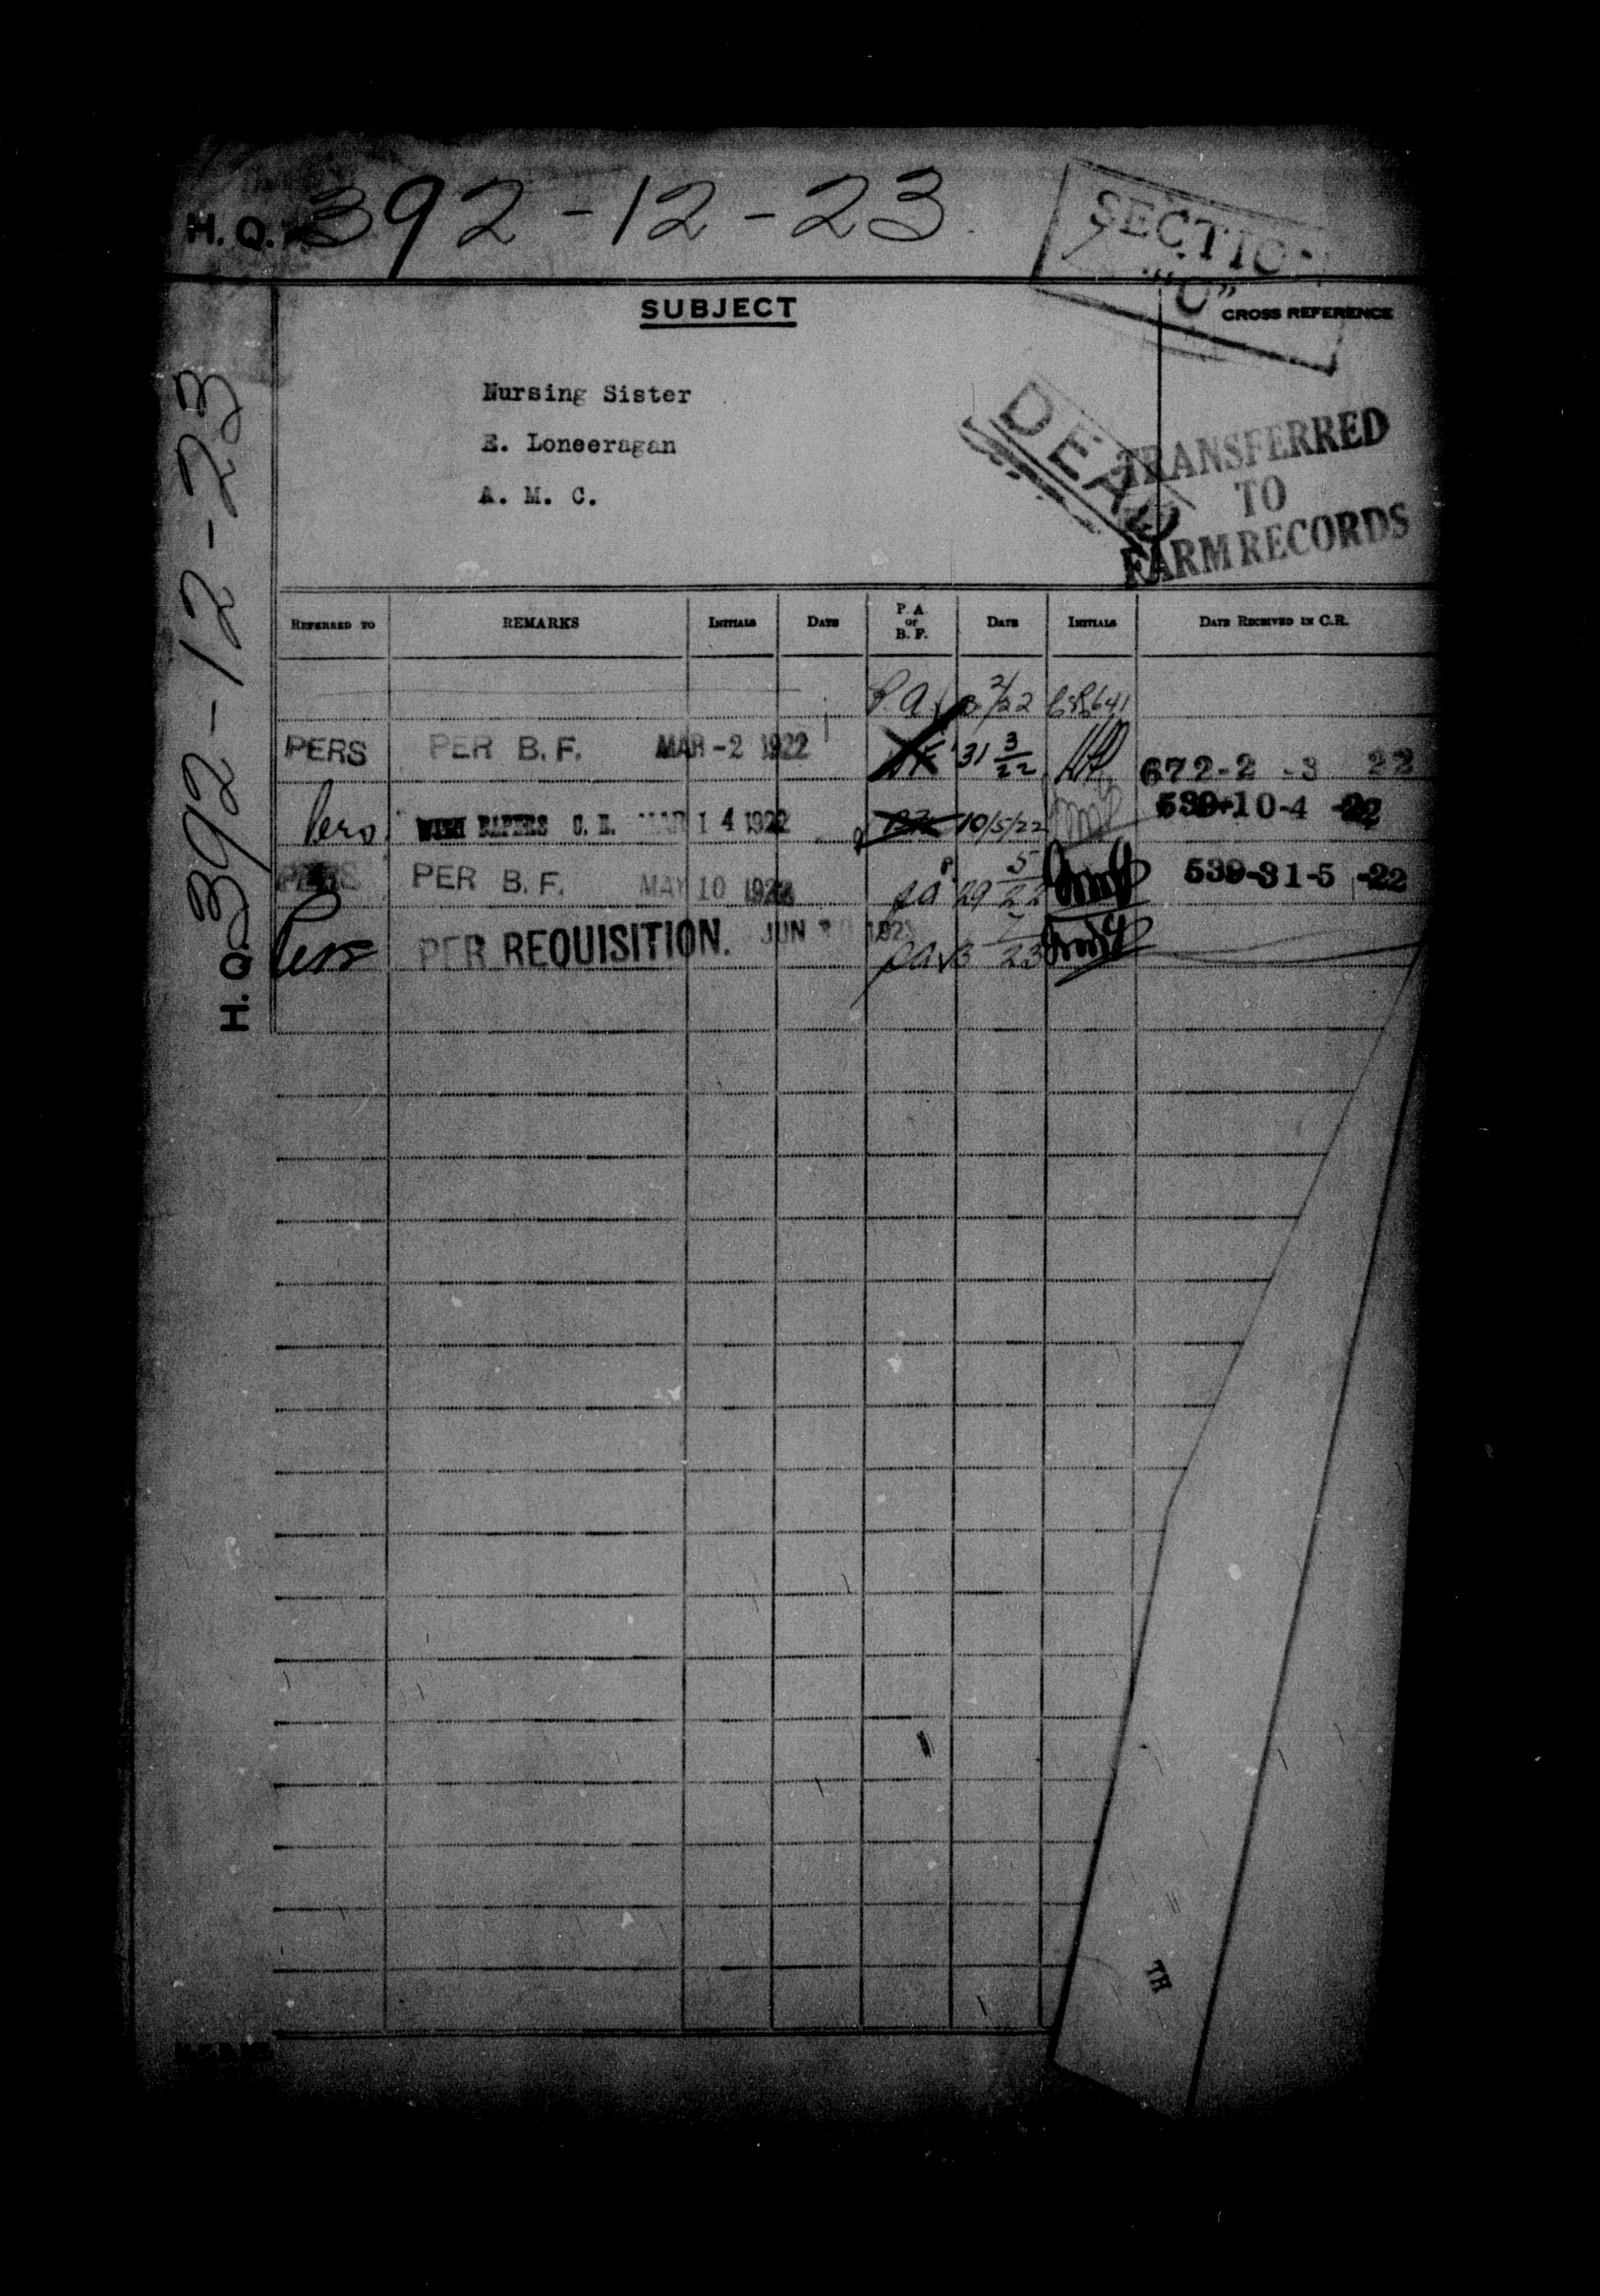 H. Q. 392-12-23
SECTIO
"C"
SUBJECT
CROSS REFERENCE
Nursing Sister
E. Loneeragan
A. M. C.
DEAD
TRANSFERRED
TO
EARM RECORDS
H. Q. 392-12-23
REFERRED TO REMARKS INITIALS DATE P. A. or B. F. DATE INITIALS DATE RECEIVED IN C.R.
P.A. 2/22
PERS PER B. F. MAR -2 1922 31 3/22 672-2 -3 22
Pers WITH PAPERS C. R. MAR 14 1922 10/5/22 539-10-4 -22
PERS PER B. F. MAY 10 1922 pa 29 5/22 539-31-5 -22
Pers PER REQUISITION. JUN pa 3 7/23
TH